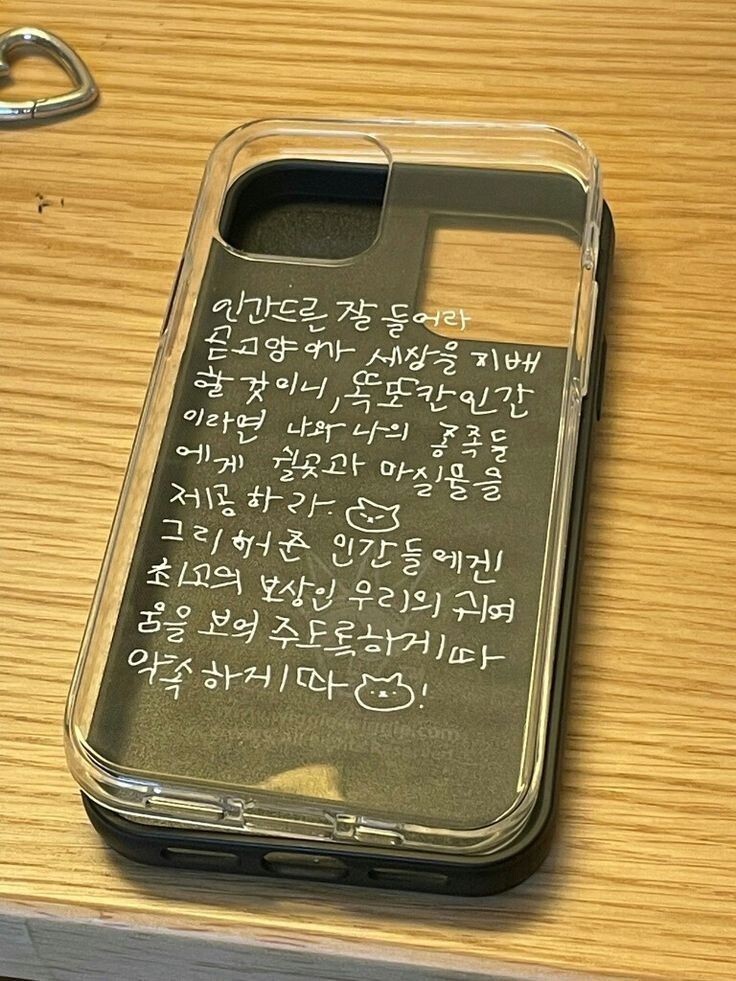 인간드른 잘 들어라
곧고양이가 세상을 지배
할 것이니, 똑또칸 인간
이라면 나와 나의 종족들
에게 쉴곳과 마실물을
제공하라.
그리해준 인간들에겐
최고의 보상인 우리의 귀여
움을 보여 주도록하게따
약속하게따!